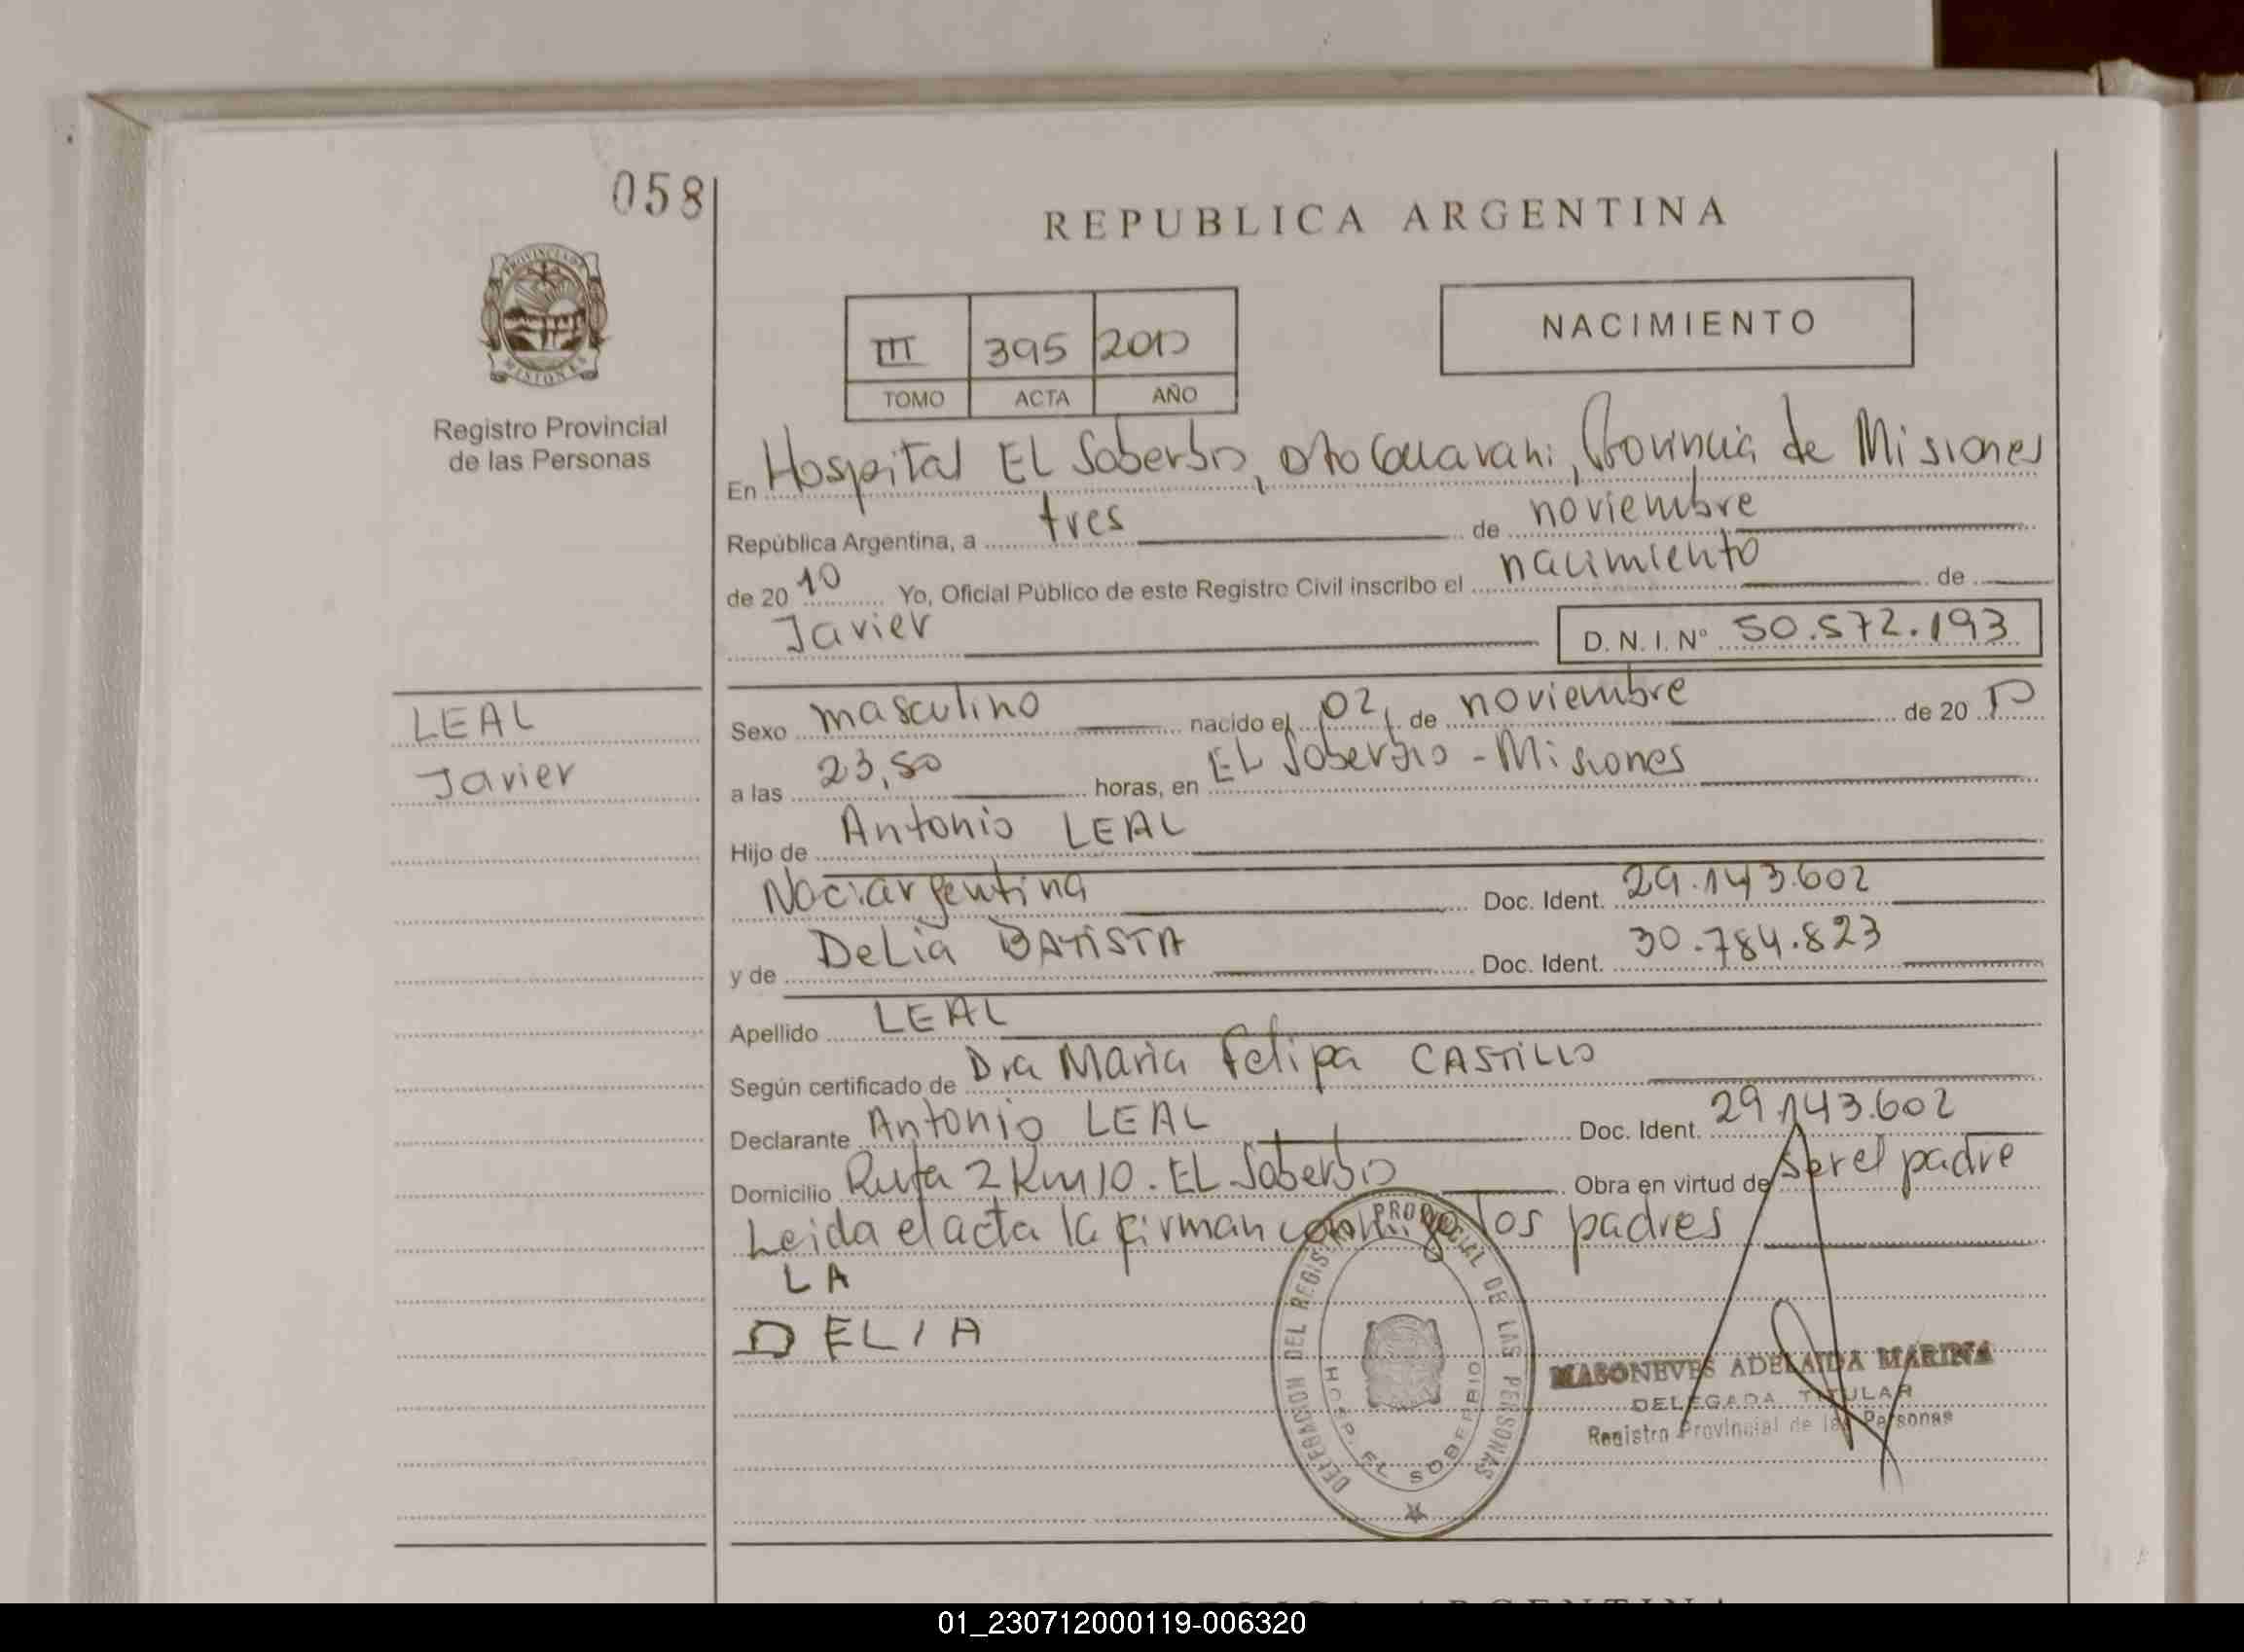 058
REPUBLICA ARGENTINA
PROVINCIA DE
MISIONES
Registro Provincial
de las Personas
III 395 2010
TOMO ACTA AÑO
NACIMIENTO
En Hospital EL Soberbio, Dto Guarani, Provincia de Misiones
República Argentina, a tres de noviembre
de 2010 Yo, Oficial Público de este Registro Civil inscribo el nacimiento de
Javier D.N.I.Nº 50.572.193
LEAL
Javier
Sexo masculino nacido el 02, de noviembre de 2010
a las 23,50 horas, en EL Soberbio - Misiones
Hijo de Antonio LEAL
Nac: argentina Doc. Ident. 29.143.602
y de DeLia BATiSTA Doc. Ident. 30.784.823
Apellido LEAL
Según certificado de Dra Maria Felipa CASTiLLO
Declarante Antonio LEAL Doc. Ident. 29.143.602
Domicilio Ruta 2 Km 10. EL Soberbio Obra en virtud de ser el padre
Leida el acta la firman conmigo los padres
LA
DELIA
DELEGACION DEL REGISTRO PROVINCIAL DE LAS PERSONAS
HOSP. EL SOBERBIO
ADELAIDA MARINA
DELEGADA TITULAR
Registro Provincial de las Personas
01_230712000119-006320